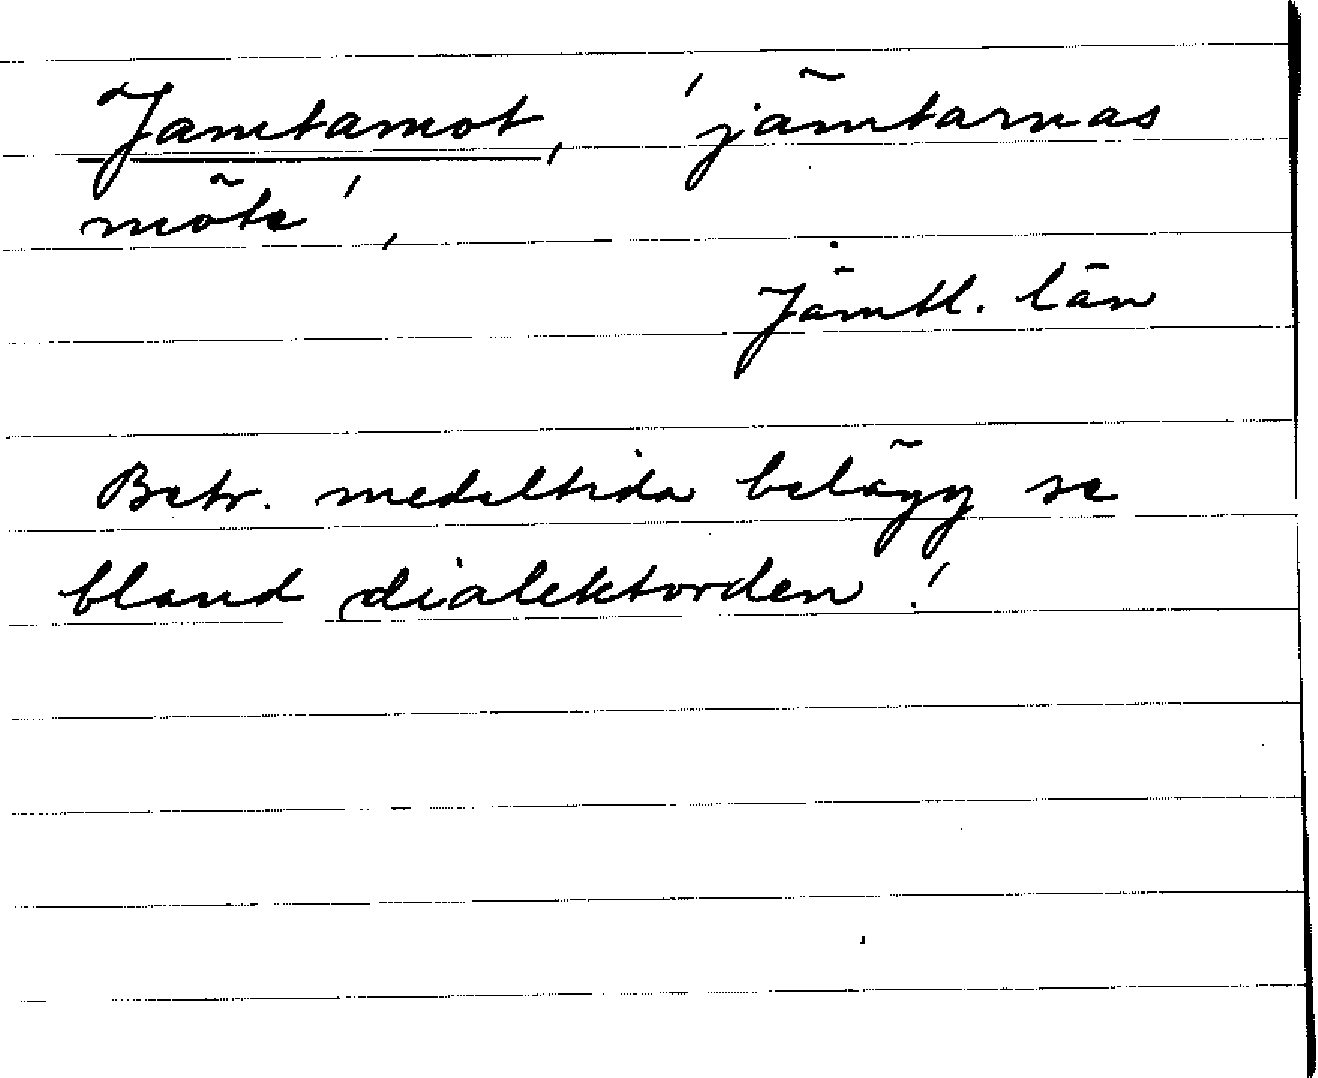 Jamtamot, 'jämtarnas
möte',
Jämtl. län
Betr. medeltida belägg se
bland dialektorden!